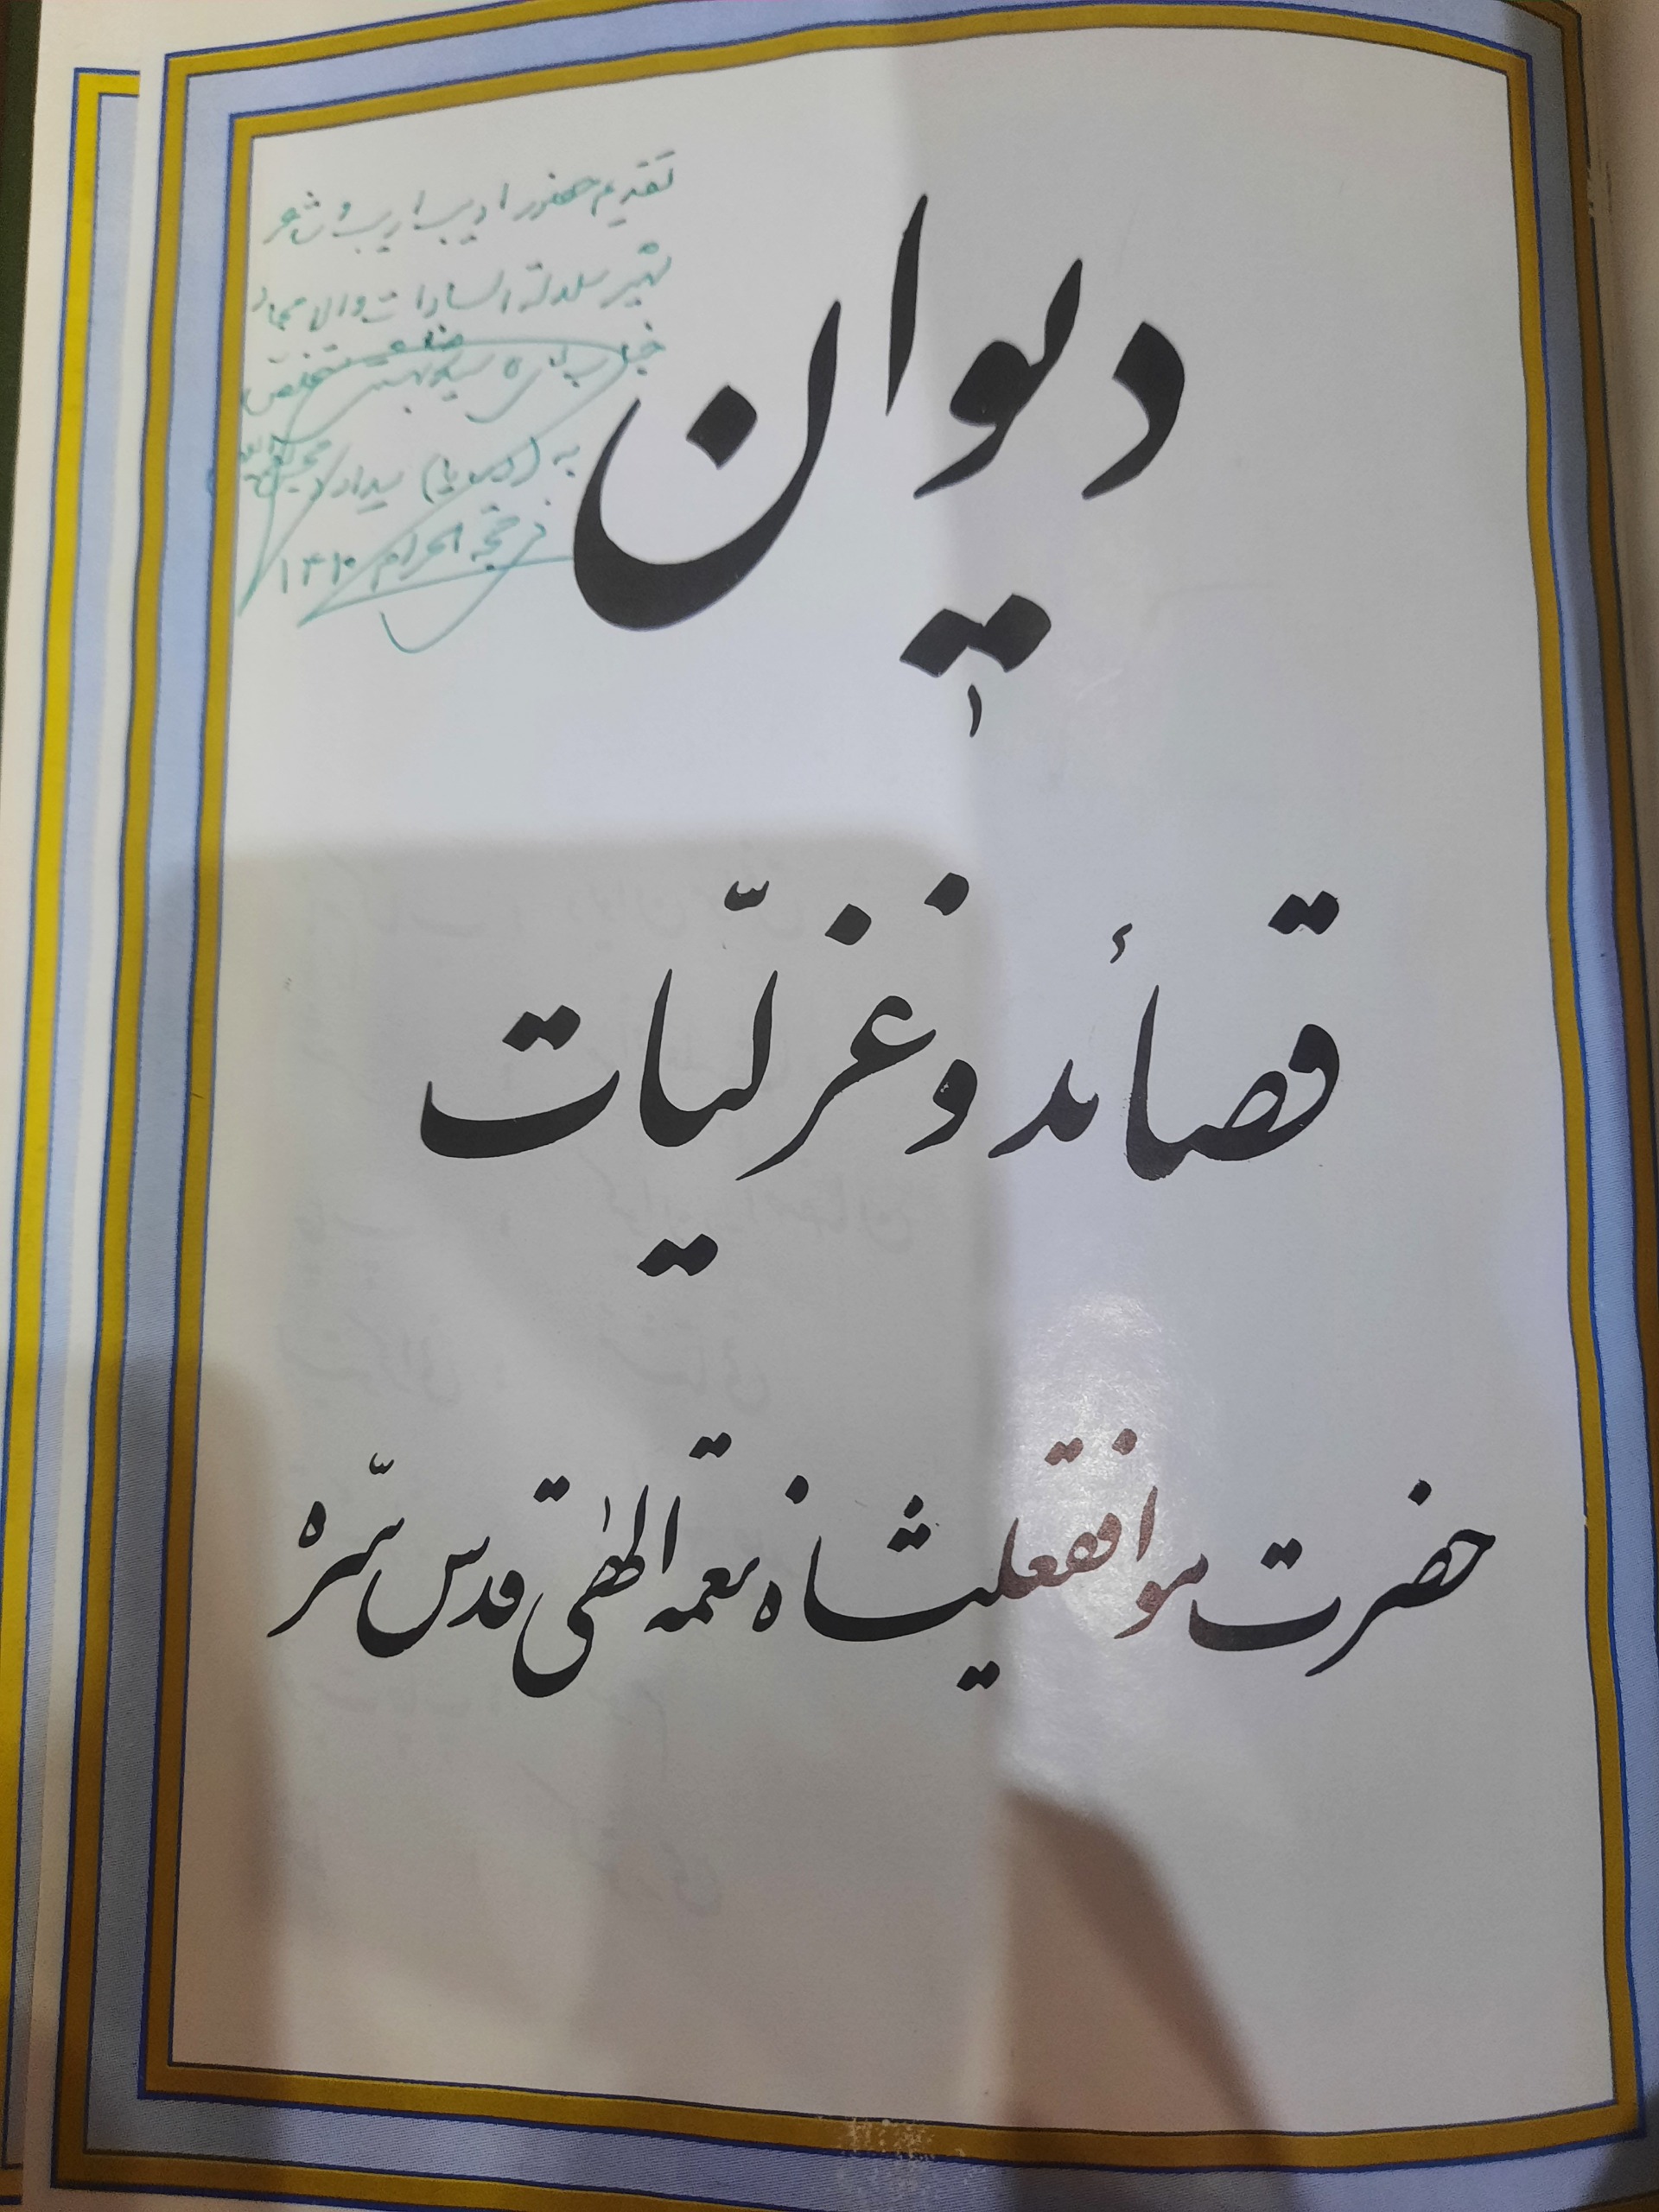 تقدیم حضور ادیب اریب و شاعر
شهیر سلالة السادات والامجاد
جناب
به
ذیحجه الحرام ۱۴۱۰
دیوان
قصائد و غزلیّات
حضرت موافقعلیشاه نعمة الهٰی قدس سّره